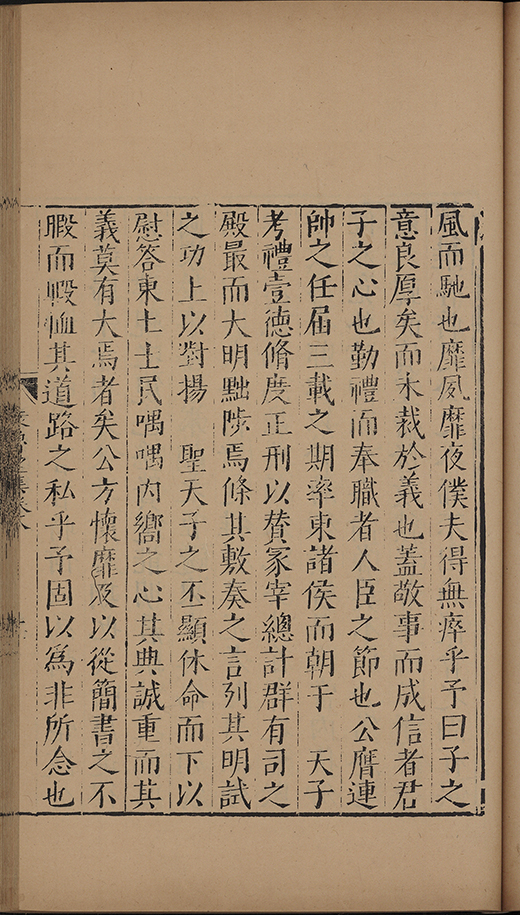 風而馳也靡夙靡夜僕夫得無瘁乎予曰子之
意良厚矣而未裁於義也蓋敬事而成信者君
子之心也勤禮而奉職者人臣之節也公膺連
帥之任届三載之期率東諸侯而朝于　天子
考禮壹德脩度正刑以贊冢宰總計群有司之
殿最而大明黜陟焉條其敷奏之言列其明試
之功上以對揚　聖天子之丕顯休命而下以
慰答東土士民喁喁內嚮之心其典誠重而其
義莫有大焉者矣公方懷靡及以從簡書之不
暇而暇恤其道路之私乎予固以爲非所念也